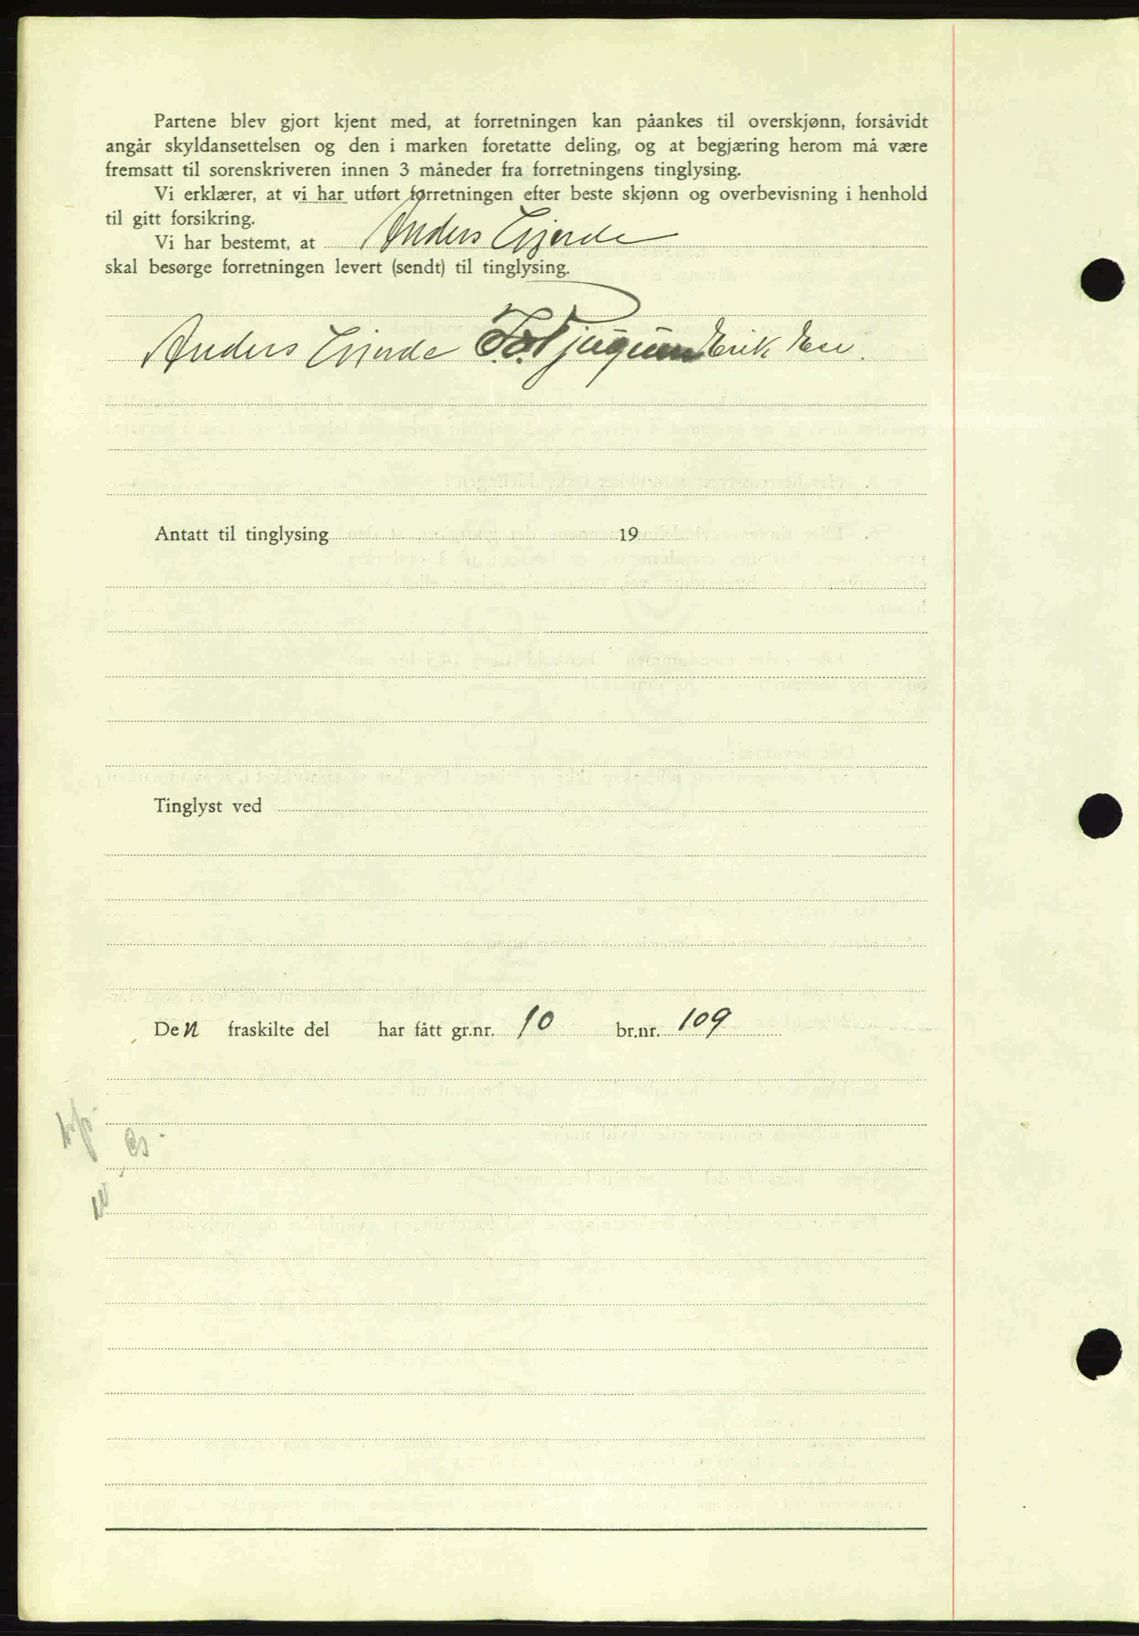 Partene blev gjort kjent med, at forretningen kan påankes til overskjønn, forsåvidt
angår skyldansettelsen og den i marken foretatte deling, og at begjæring herom må være
fremsatt til sorenskriveren innen 3 måneder fra forretningens tinglysing.
Vi erklærer, at vi har utført forretningen efter beste skjønn og overbevisning i henhold
til gitt forsikring.
Vi har bestemt, at Anders Gjerde
skal besørge forretningen levert (sendt) til tinglysing.
Anders Gjerde Erik
Antatt til tinglysing 19
Tinglyst ved
Den fraskilte del har fått gr.nr. 10 br.nr. 109